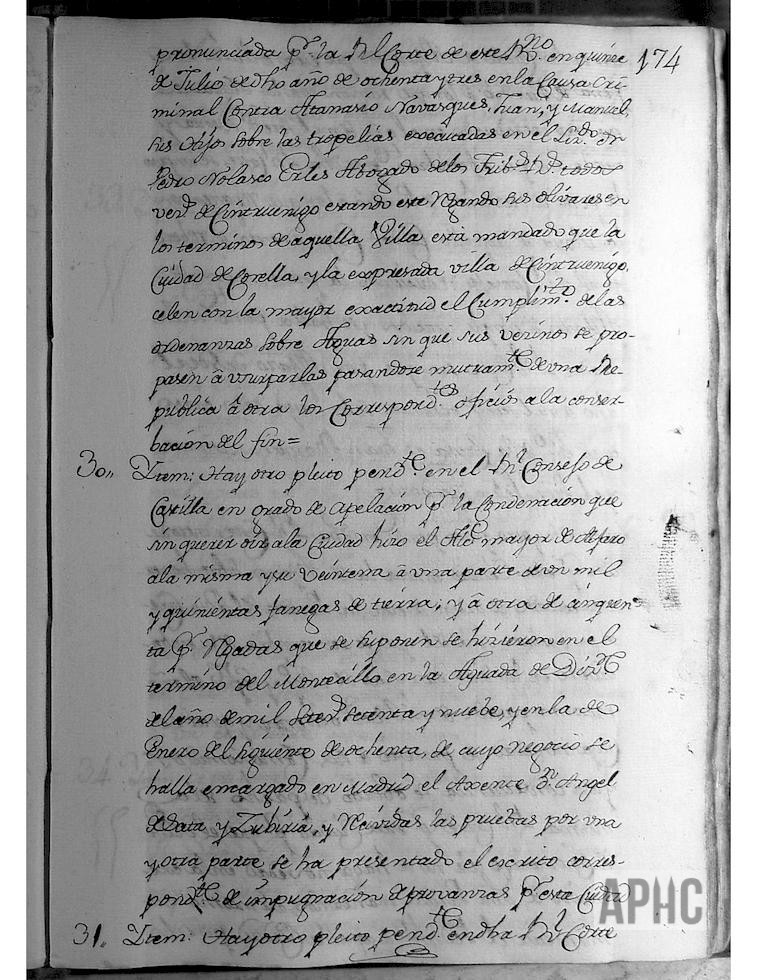 174
pronunciada pr. la Rl Corte de este Rno. en quince
de Julio de dho año de ochenta y tres en la Causa Cri-
minal Contra Atanasio Navasques, Juan, y Manuel,
sus Hijos sobre las tropelias executadas en el Lizdo. Dn
Pedro Nolasco Erles Abogado de los Tribs. Rs. todos
vezs. de Cintruenigo estando este Regando sus olivares en
los terminos de aquella Villa está mandado que la
Ciudad de Corella, y la expresada villa de Cintruenigo,
celen con la mayor exactitud el Cumplimto. de las
ordenanzas sobre Aguas sin que sus vecinos se pro-
pasen â usurparlas pasandose mutuamte. de una Re-
publica â otra los Correspondtes. oficios a la conser-
bacion del fin=
30,, Ytem: Hay otro pleito pendte. en el Rl. Consejo de
Castilla en grado de apelacion pr. la Condenacion que
sin querer oir a la Ciudad hizo el Alce mayor de Alfaro
a la misma y su Veintena â una parte de un mil
y quinientas fanegas de tierra; y â otra de cinquen-
ta pr. Regadas que se suponen se hizieron en el
termino del Montecillo en la Aguada de Dizre
del año de mil setezs. setenta y nuebe, y en la de
Enero del siguiente de ochenta, de cuyo negocio se
halla encargado en Madrid el Axente Dn. Angel
de Data y Zubiria, y Recividas las pruebas por una
y otra parte se ha presentado el escrito corres-
pondte. de impugnacion de provanzas pr. esta Ciudad
31,, Ytem: Hay otro pleito pendte. en dha Rl. Corte
APHC